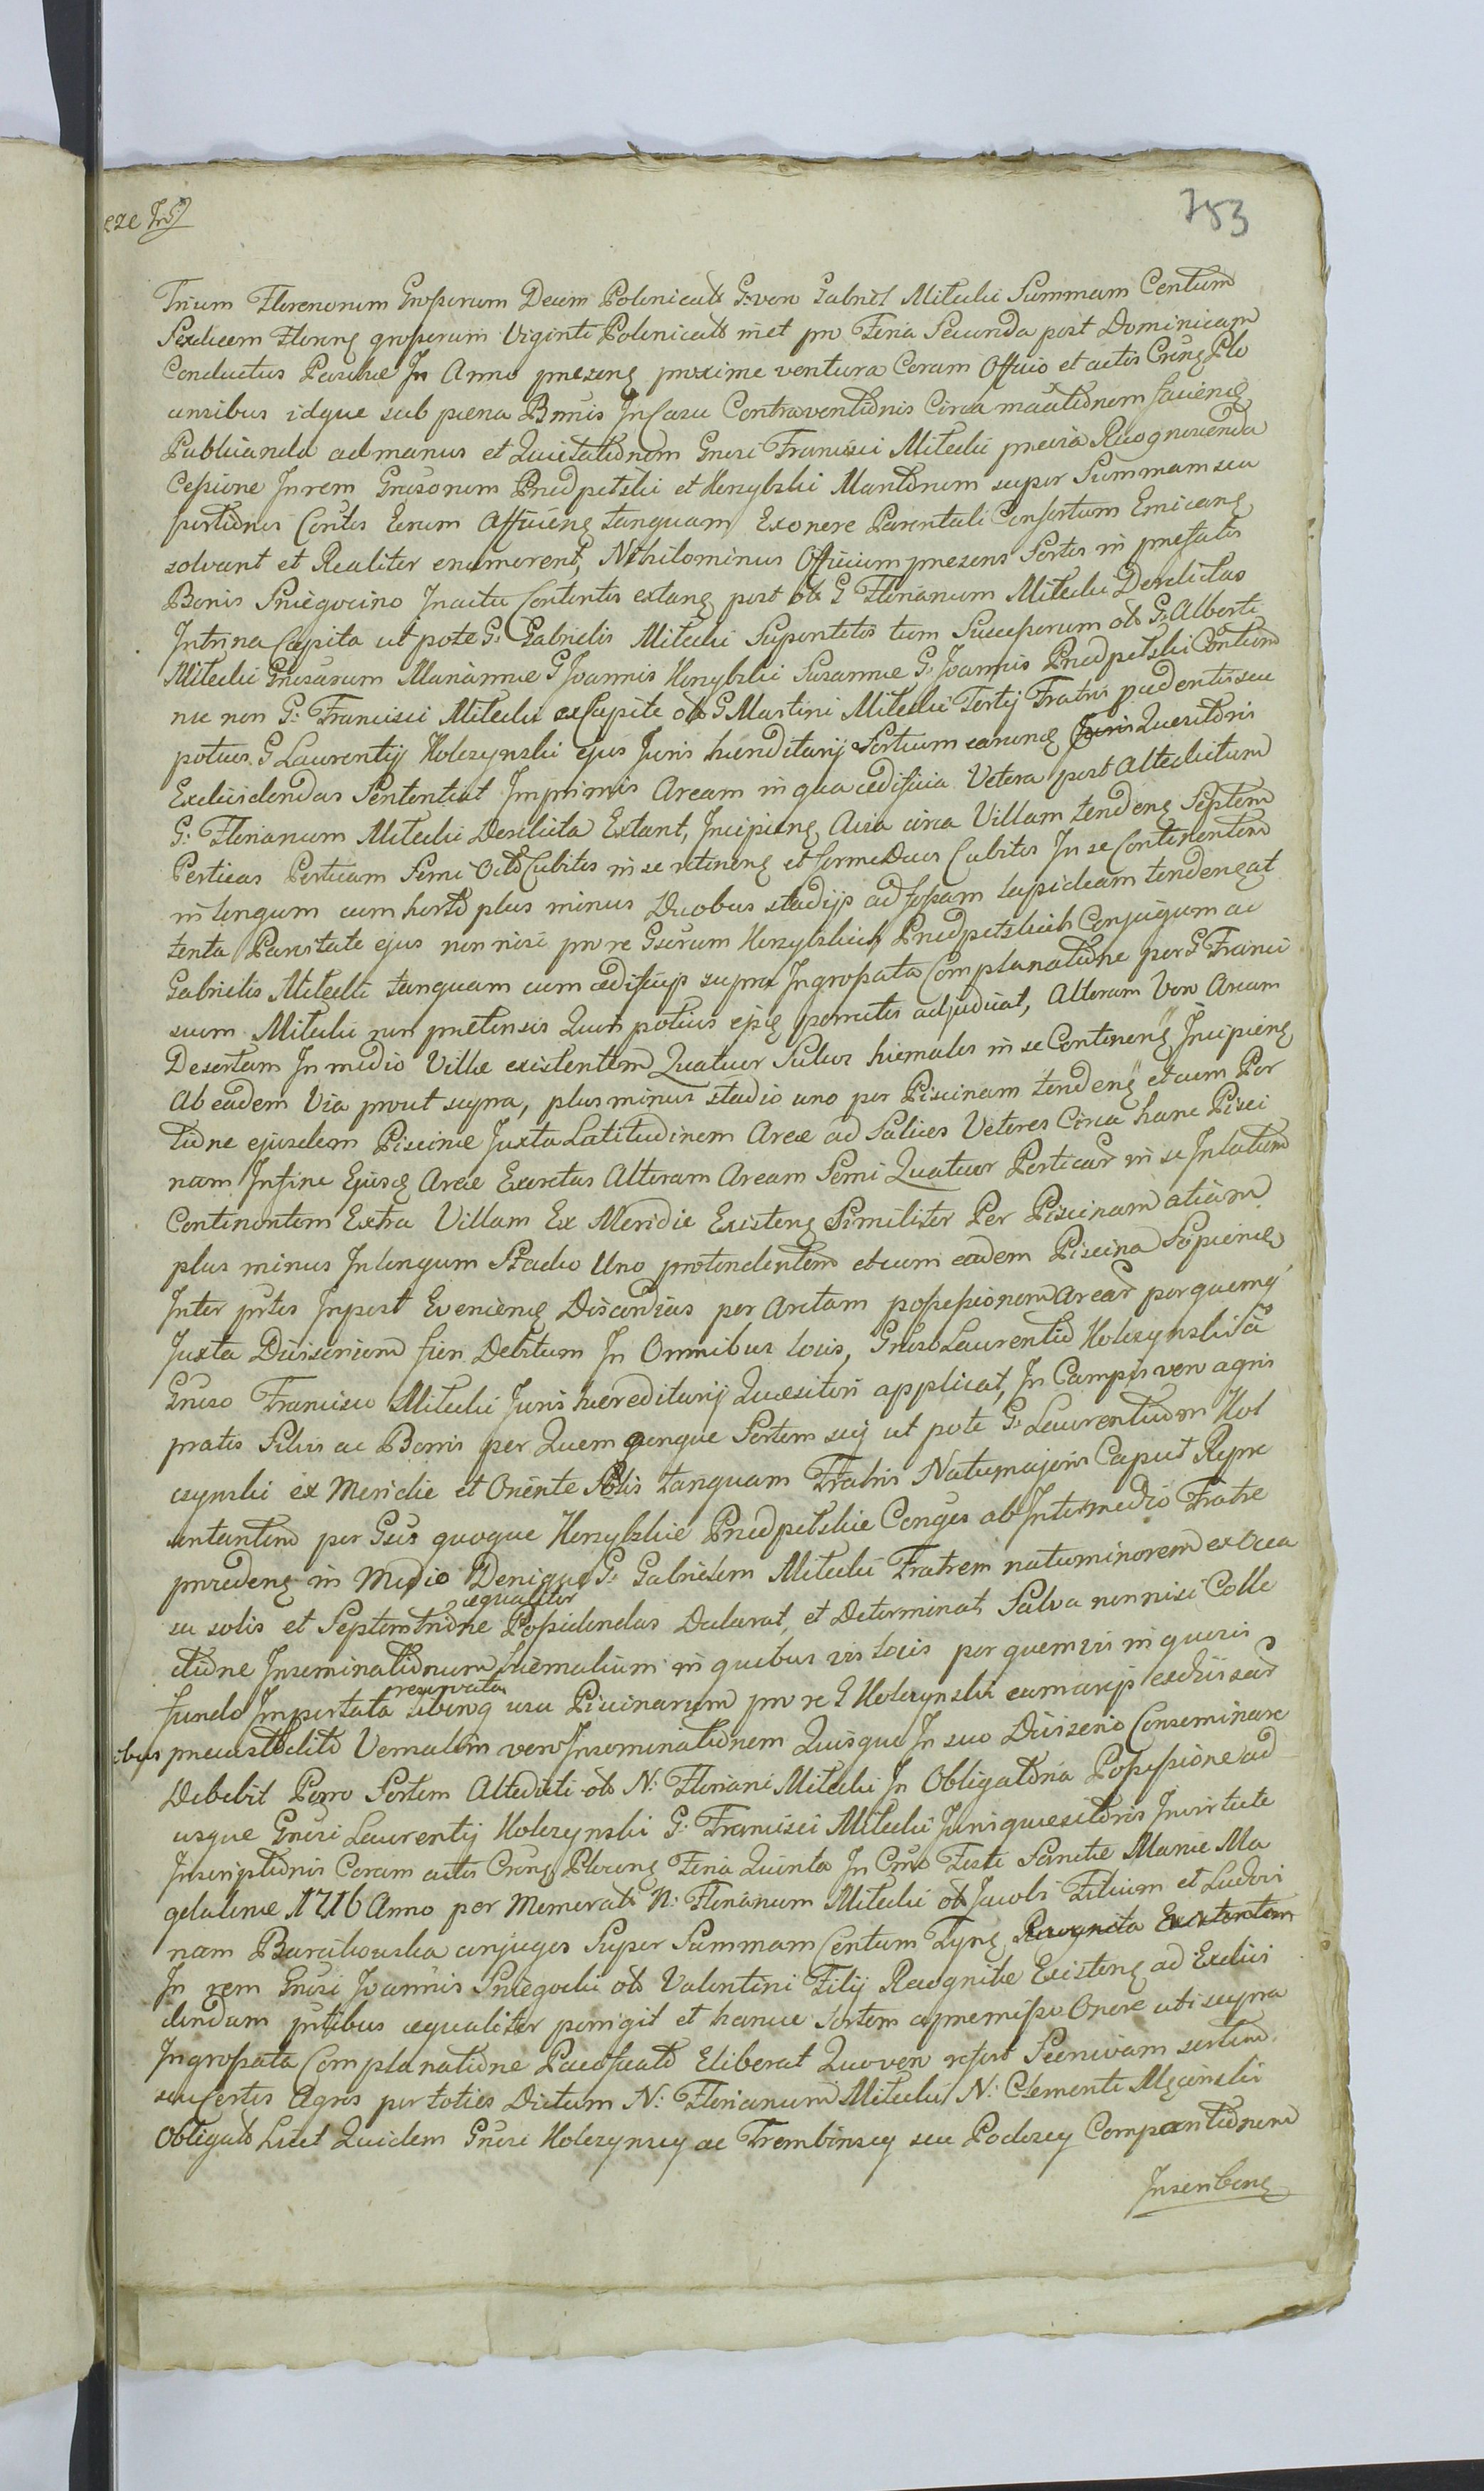 753
Trium Florenorum Grossorum Decem Polonicales G: vero Gabriel Mitecki Summam Centum
Sexdecem Floreng grossorum Viginti Polonicales met pro Feria Secunda post Dominicam
Conductus Paschae In Anno prezeng proxime ventura Coram Officio et actis Creng Plo
cnsibus idque sub paena Bnnis In Casu Contraventionis Circa factieng
Publicanda ad manus et Quietationem Gnrsi Francisci Mitecki previa Recognoscenda
Cessione In rem Gnrsorum Pned petski et Herzybski super Summam seu
portiones Contes Eorum Afficieng tanquam Exonere Parentali Consortum Emicang
solvant et Realiter enumerent, Nihilominus Officium prezens Sortes in prefatis
Bonis Sniegocino In actu Contentis extang post ob G Florianum Mitecki Derelictas
In trina Capita ut pote G: Gabrielis Mitecki Superstitis tum Successorum ob G: Alberti
Mitecki Gnrsarum Mariannae G Joannis Herzybski Susannae G: Joannis Pnedpetski Contium
nec non G: Francisci Mitecki ex Capite ob G Martini Mitecki Tertij Fratris pcedentis seu
potius G Laurentij Holczynski ejus Juris haereditarij Sortium earung Quesitoris
Excidendas Sententiat Inprimis Aream in qua aedificia Vetera post Altedictum
G: Florianum Mitecki Derelicta Extant, Incipieng a via circa Villam tendeng Septem
Perticas Perticam Semi Octo Cubitos in se retineng et ferme Duos Cubitos In se Continentem
in longum cum horto plus minus Duobus stadijs ad fossam lapideam tendeng at
tenta Paritate ejus non nisi pro re Gsorum Herzybskich, Pnedpetskich Conjugum ac
Gabrielis Mitecki tanquam cum aedificijs supra Ingrossata Complanatione per G Franci
scum Mitecki non pretensis Quin potius ejs permitis adjudicat, Alteram Vero Aream
Desertam In medio Villae existentem Quatuor Sulcos hiemales in se Contineng Incipieng
Ab eadem Via prout supra, plus minus stadio uno per Piscinam tendeng et cum Por
tione ejusdem Piscinae Juxta Latitudinem Areae ad Salices Veteres Circa hanc Pisci
nam In fine Ejusd Areae Exoretas Alteram Aream Semi Quatuor Perticas in se In latum
Continentem Extra Villam Ex Meridie Existeng Similiter Per Piscinam etiam
plus minus In longum Stadio Uno protendentem et cum eadem Piscina Sopieng
Inter ptes Inpost Evenieng Discordias per Arctam possessionem Arear per quemq
Juxta Divisorium fieri Debitum In Omnibus locis, Gnrso Laurentio Holczynski
Gnrso Francisco Mitecki Juris haereditarij Quaesitori applicat, In Campis vero agris
pratis Silvis ac Borris per Quemqunque Sortem suij ut pote G: Laurentium Hol
czynski ex Meridie et Oriente Solis tanquam Fratris Natu majoris Caput Repre
sentantem per Gsos quoque Herzybskie Pnedpetskie Conges ab Intermedio Fratre
procedeng in Medio Denique G: Gabrielem Mitecki Fratrem natu minorem ex Occa
su solis et Septemtrione aequaliter Possidendas Declarat, et Determinat Salva non nisi Colle
ctione Inseminationum hiemalium in quibus vis locis per quemvis in quovis
fundo Importata reservata liberoq usu Piscinarum pro re G Holczynski
ibus precustodito Vernalem vero Inseminationem Quisque In suo Divisorio Conseminare
Debebit Porro Sortem Altedicti ob N: Floriani Mitecki In Obligatoria Possessione ad
usque Gnrsi Laurentij Holczynski G: Francisci Mitecki Juris quaesitoris In virtute
Inscriptionis Coram actis Creng Ploceng Feria Quinta In Cmo Festi Sanctae Mariae Ma
gdalenae 1716 Anno per Memorati N: Florianum Mitecki ob Jacobi Filium et Ludovi
nam Barcikowska conjuges Super Summam Centum Tyng Recognita Existentem
In rem Gnrsi Joannis Sniegocki ob Valentini Filij Recognitae Existeng ad Excidi
dendum ptibus aequaliter porrigit et hancce sortem a premisso Onere uti supra
Ingrossata Complanatione Pacificato Eliberat Quo vero refert Scenivam sortem
seu certos Agros per toties Dictum N: Florianum Mitecki N: Clementi Mycinski
Obligato Licet Quidem Gnrsi Holczynscy ac Trembinscy seu Podoscy Comparitionem
Inscribeng